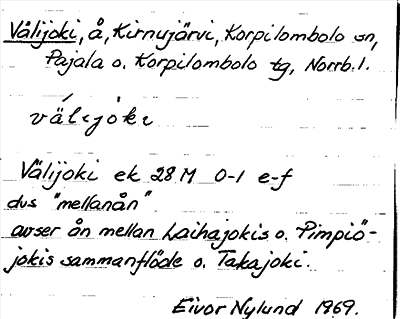 Välijoki, å, Kirnujärvi, Korpilombolo sn,
Pajala o. Korpilombolo tg, Norrb. l.
välijoki
Välijoki ek 28 M 0-1 e-f
dvs "mellanån"
avser ån mellan Laihajokis o. Pimpiö-
jokis sammanflöde o. Takajoki.
Eivor Nylund 1969.